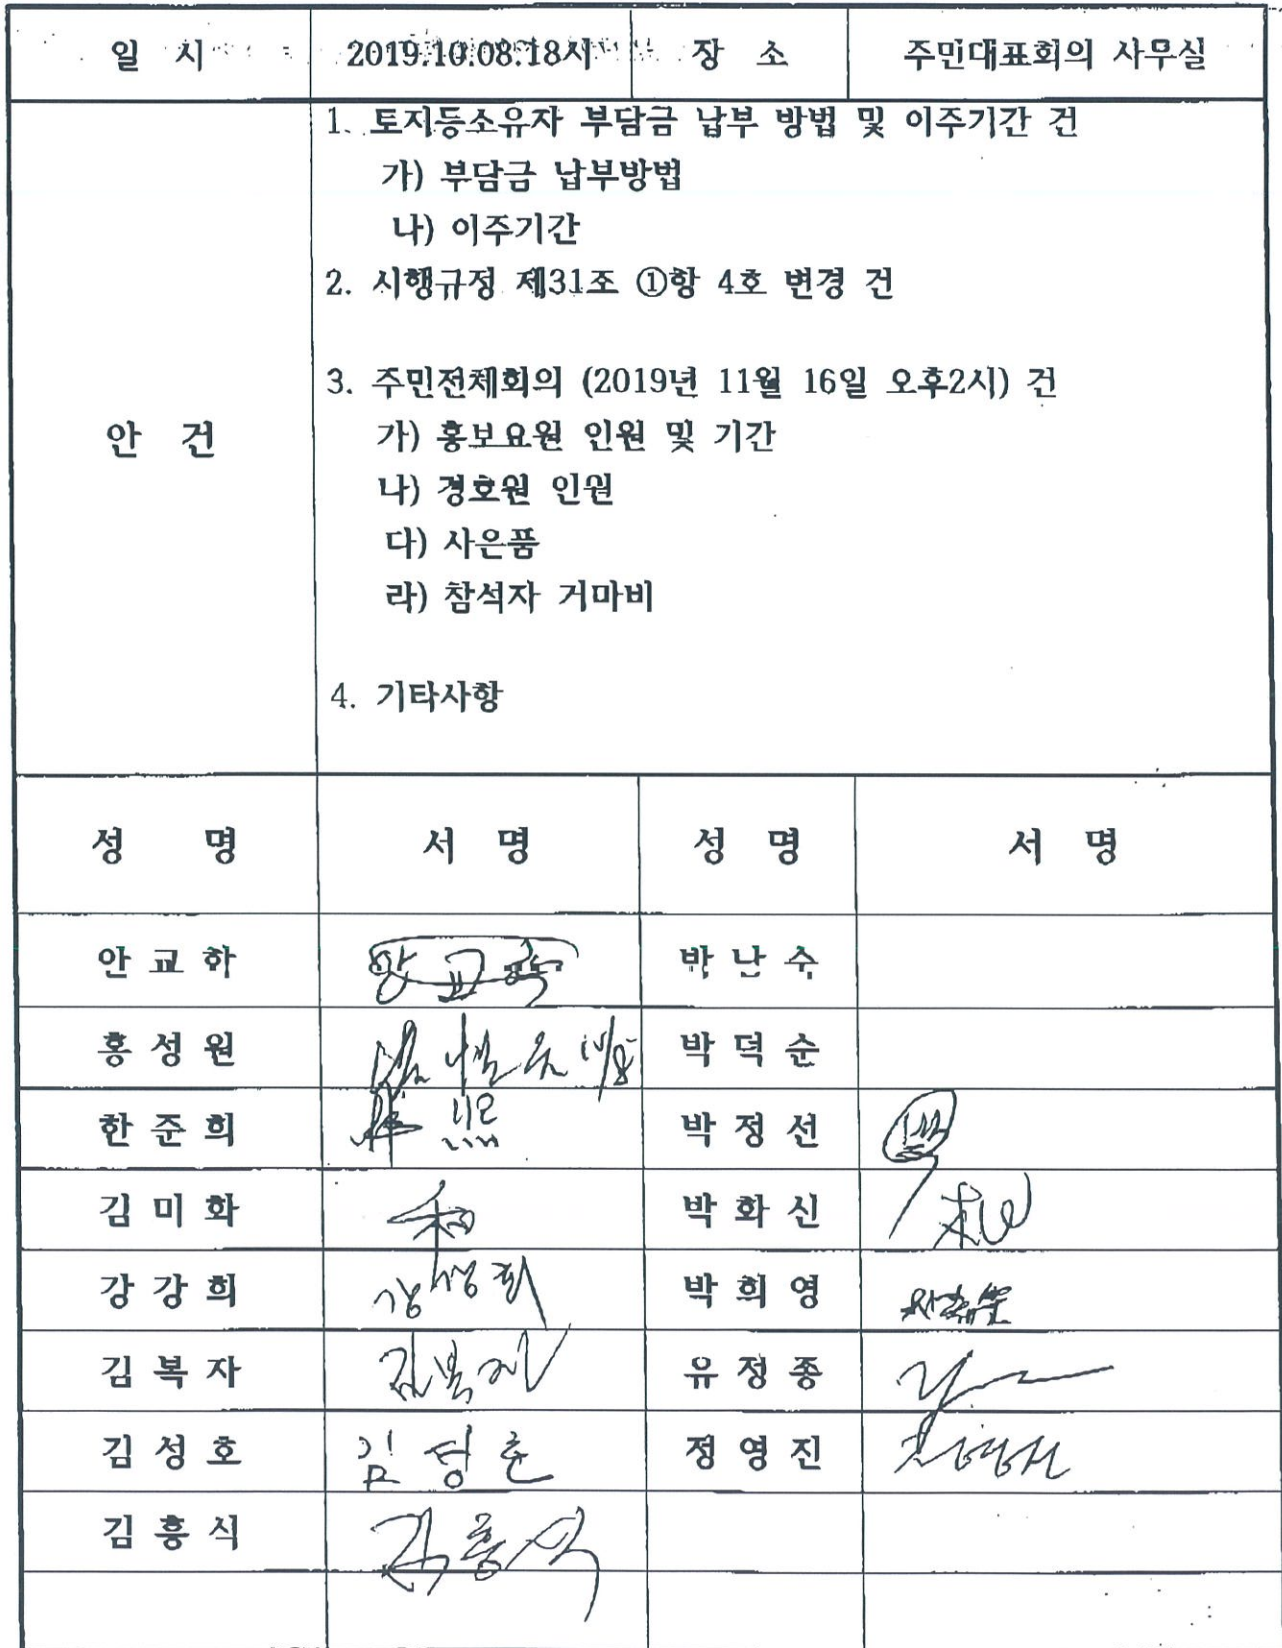 일 시 2019.10.08.18시 장 소 주민대표회의 사무실
안 건
1. 토지등소유자 부담금 납부 방법 및 이주기간 건
가) 부담금 납부방법
나) 이주기간
2. 시행규정 제31조 ①항 4호 변경 건
3. 주민전체회의 (2019년 11월 16일 오후2시) 건
가) 홍보요원 인원 및 기간
나) 경호원 인원
다) 사은품
라) 참석자 거마비
4. 기타사항
성 명 서 명 성 명 서 명
안 교 학 박 난 수
홍 성 원 박 덕 순
한 준 희 박 정 선
김 미 화 박 화 신
강 강 희 박 희 영
김 복 자 김복자 유 정 종
김 성 호 정 영 진
김 흥 식 김흥식